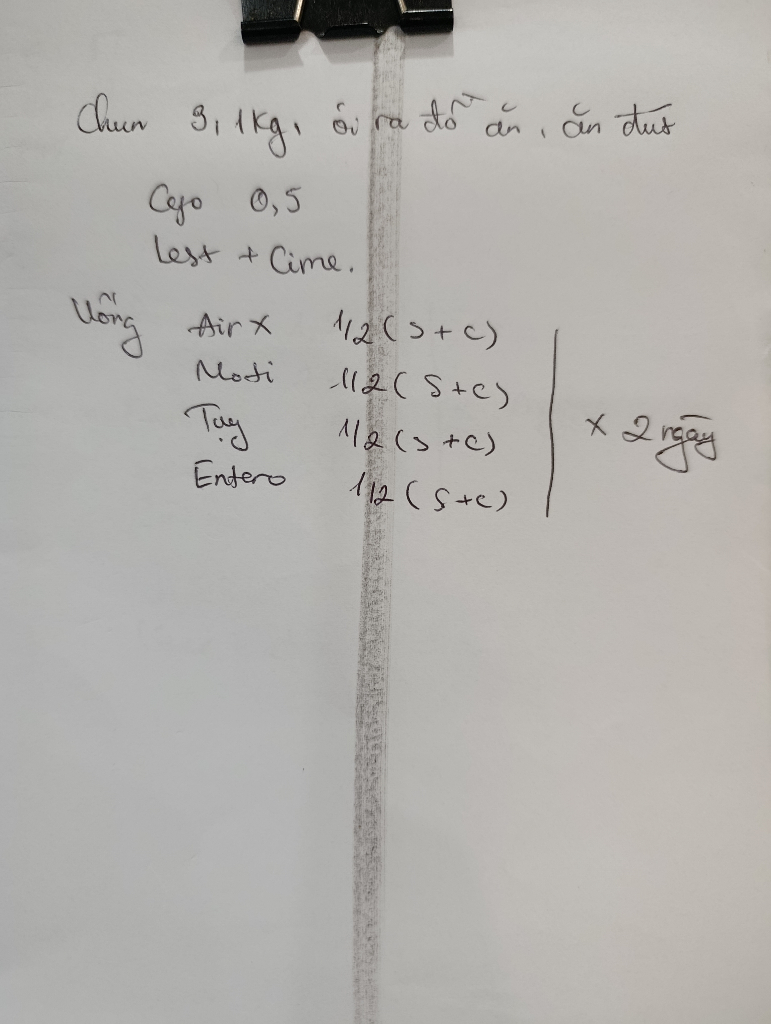 Chun 3,1kg, ói ra đồ ăn, ăn được
Cefo 0,5
Lest + Cime.
Uống AirX 1/2 (S+C)
Moti 1/2 (S+C)
Tạy 1/2 (S+C)
Entero 1/2 (S+C)
x 2 ngày